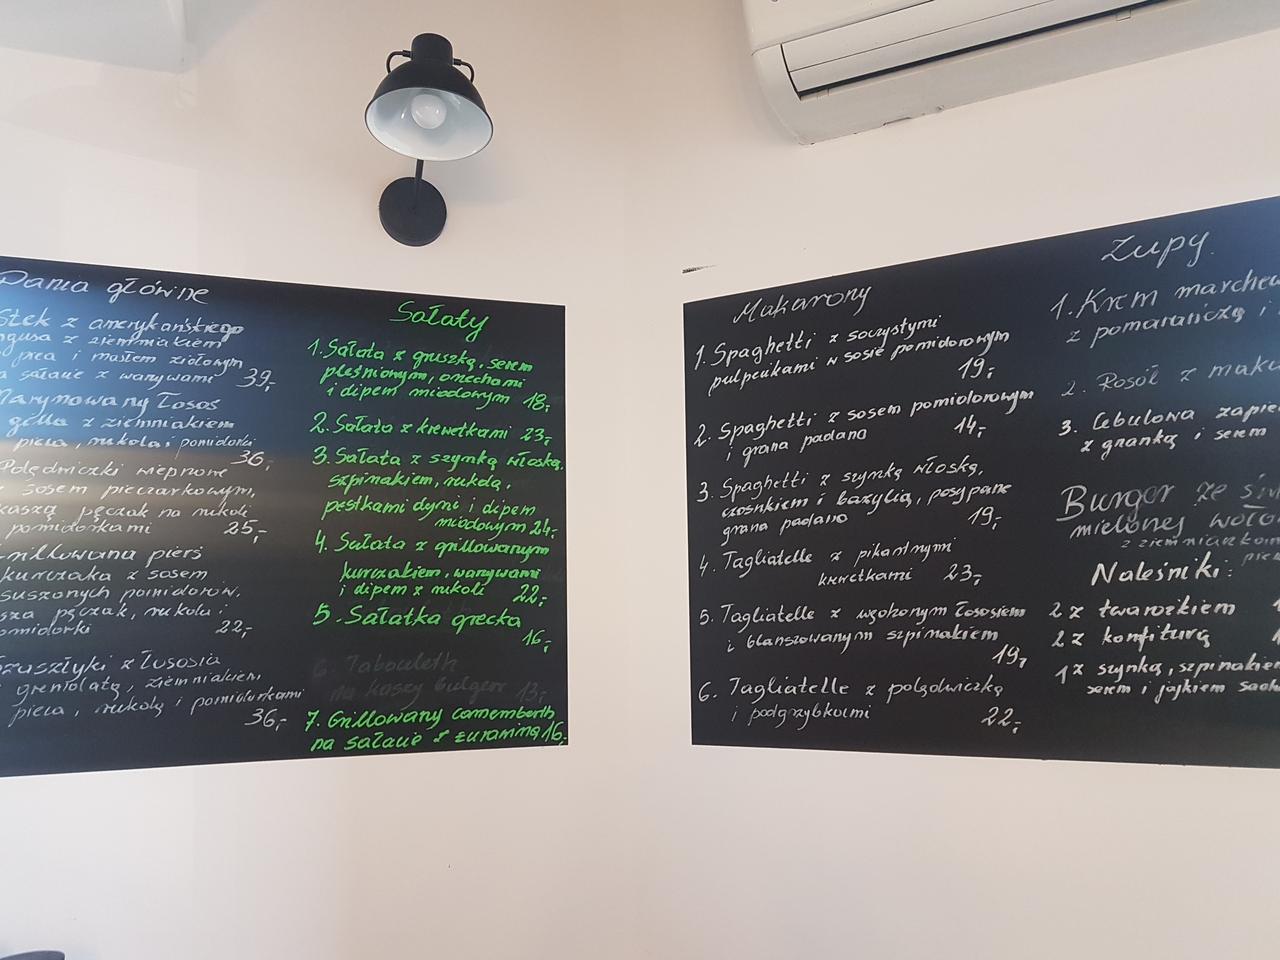 Dania główne
Stek z amerykańskiego
z ziemniakiem
i masłem ziołowym
z warzywami 39,-
Marynowany łosoś
z ziemniakiem
pieca, rukola i pomidorki
36,-
Polędwiczki wieprzowe
sosem pieczarkowym,
kaszą pęczak na rukoli
pomidorkami 25,-
Grillowana pierś
kurczaka z sosem
suszonych pomidorów,
pęczak, rukola i
pomidorki 22,-
z łososia
gremolatą, ziemniakiem
pieca, rukolą i pomidorkami
36,-
Sałaty
1. Sałata z gruszką, serem
pleśniowym, orzechami
i dipem miodowym 18,-
2. Sałata z krewetkami 23,-
3. Sałata z szynką włoską,
szpinakiem, rukolą,
pestkami dyni i dipem
miodowym 24,-
4. Sałata z grillowanym
kurczakiem, warzywami
i dipem z rukoli 22,-
5. Sałatka grecka
16,-
6. Tabouleth
na kaszy bulgur 13,-
7. Grillowany camemberth
na sałacie z żurawiną 16,-
Makarony
1. Spaghetti z soczystymi
pulpecikami w sosie pomidorowym
19,-
2. Spaghetti z sosem pomidorowym
i grana padano 14,-
3. Spaghetti z szynką włoską,
czosnkiem i bazylią, posypane
grana padano 19,-
4. Tagliatelle z pikantnymi
krewetkami 23,-
5. Tagliatelle z wędzonym łososiem
i blanszowanym szpinakiem
19,-
6. Tagliatelle z polędwiczką
i podgrzybkami 22,-
Zupy
1. Krem
z pomarańczą i
2. Rosół z
3. Cebulowa
z grzanką i serem
Burger ze
mielonej
z
Naleśniki:
2 z twarożkiem
2 z konfiturą
1 z szynką,
serem i jajkiem